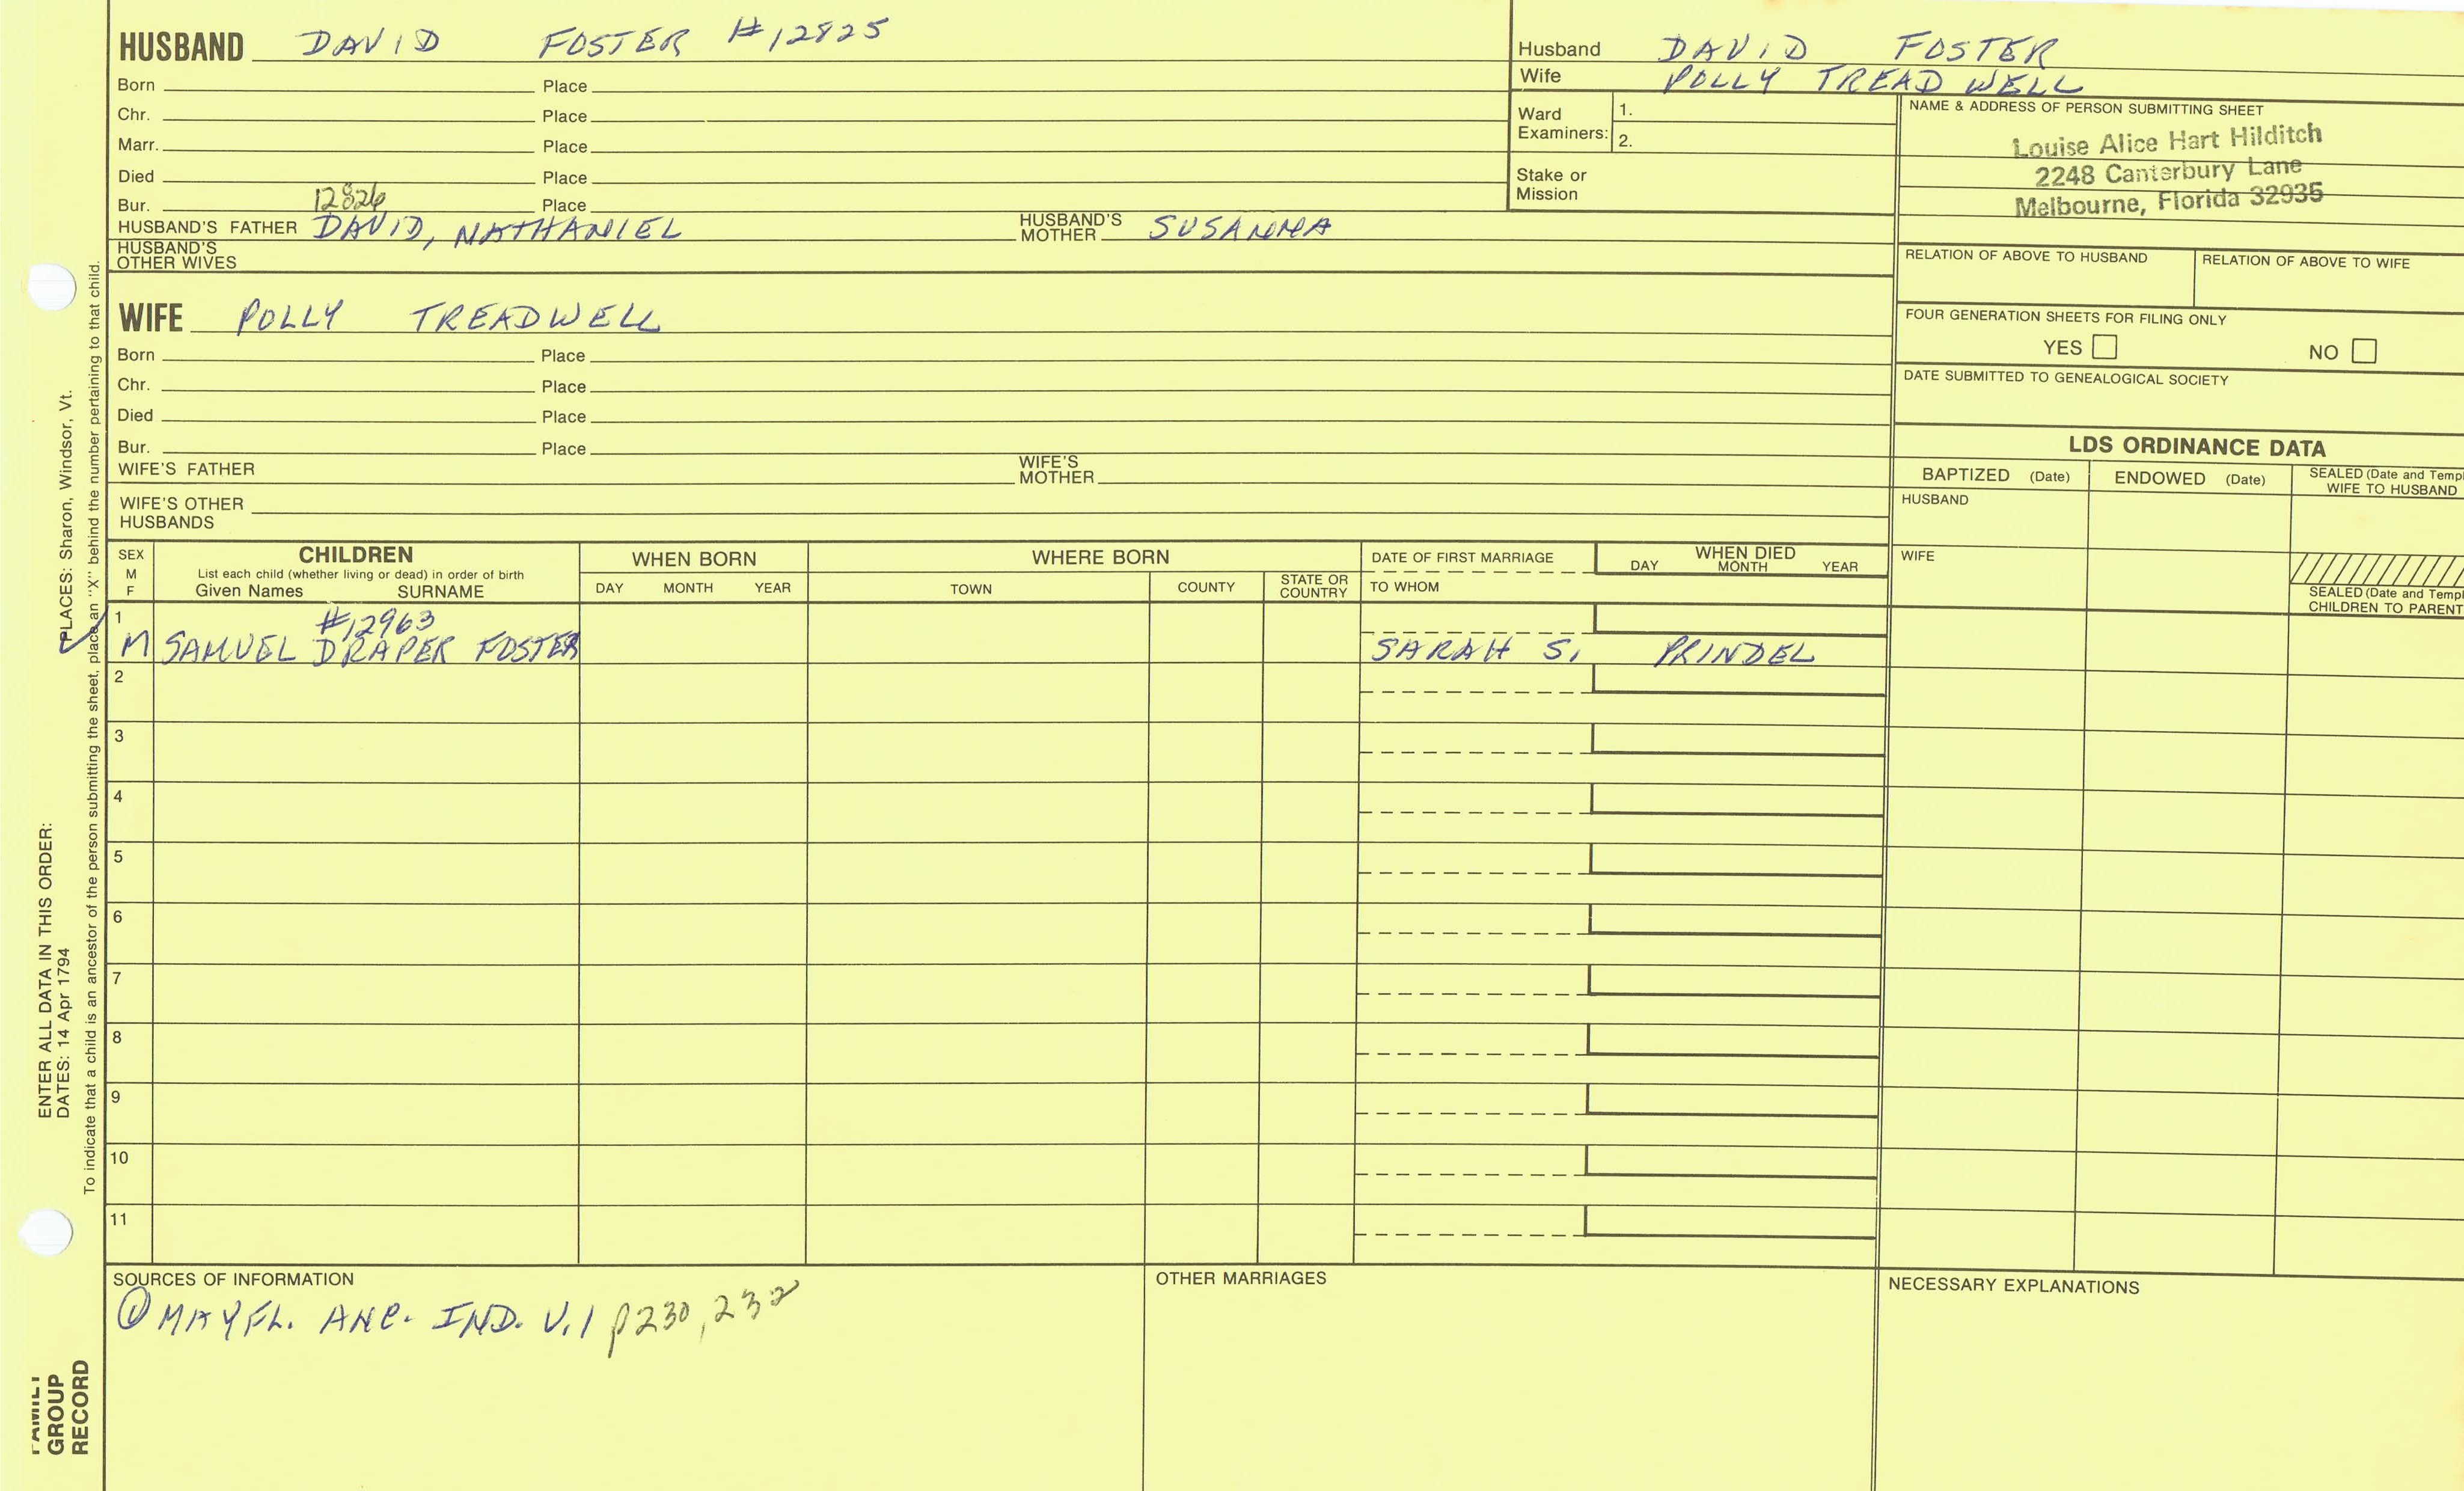 HUSBAND DAVID FOSTER #12825
Born Place
Chr. Place
Marr. Place
Died Place
12826
Bur. Place
HUSBAND'S FATHER DAVID, NATHANIEL HUSBAND'S MOTHER SUSANNA
HUSBAND'S OTHER WIVES
WIFE POLLY TREADWELL
Born Place
Chr. Place
Died Place
Bur. Place
WIFE'S FATHER WIFE'S MOTHER
WIFE'S OTHER HUSBANDS
Husband DAVID FOSTER
Wife POLLY TREAD WELL
Ward Examiners: 1.
2.
Stake or Mission
NAME & ADDRESS OF PERSON SUBMITTING SHEET
Louise Alice Hart Hilditch
2248 Canterbury Lane
Melbourne, Florida 32935
RELATION OF ABOVE TO HUSBAND RELATION OF ABOVE TO WIFE
FOUR GENERATION SHEETS FOR FILING ONLY
YES NO
DATE SUBMITTED TO GENEALOGICAL SOCIETY
LDS ORDINANCE DATA
BAPTIZED (Date) ENDOWED (Date) SEALED (Date and Templ
WIFE TO HUSBAND
HUSBAND
WIFE
SEALED (Date and Templ
CHILDREN TO PARENT
SEX M F
CHILDREN
List each child (whether living or dead) in order of birth
Given Names SURNAME
WHEN BORN
DAY MONTH YEAR
WHERE BORN
TOWN COUNTY STATE OR COUNTRY
DATE OF FIRST MARRIAGE
TO WHOM
WHEN DIED
DAY MONTH YEAR
1 #12963
M SAMUEL DRAPER FOSTER SARAH S. PRINDEL
2
3
4
5
6
7
8
9
10
11
SOURCES OF INFORMATION
① MAYFL. ANC. IND. V.1 p230, 232
OTHER MARRIAGES
NECESSARY EXPLANATIONS
ENTER ALL DATA IN THIS ORDER:
DATES: 14 Apr 1794 PLACES: Sharon, Windsor, Vt.
To indicate that a child is an ancestor of the person submitting the sheet, place an "X" behind the number pertaining to that child.
FAMILY
GROUP
RECORD